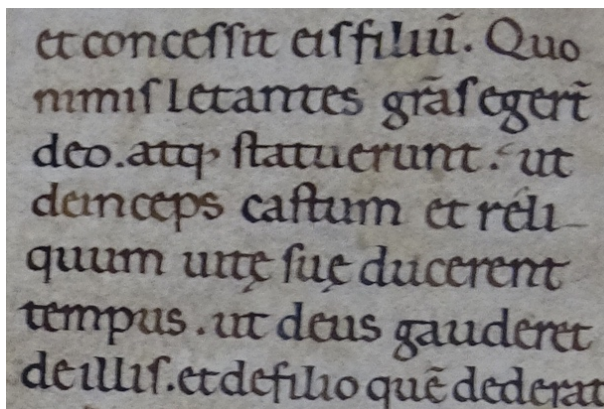 et concessit eis filiū. Quo
nimis letantes grās egerт̄
deo. atq; statuerunt. ut
deinceps castum et reli
quum uitę suę ducerent
tempus. ut deus gauderet
de illis. et de filio quē dederat